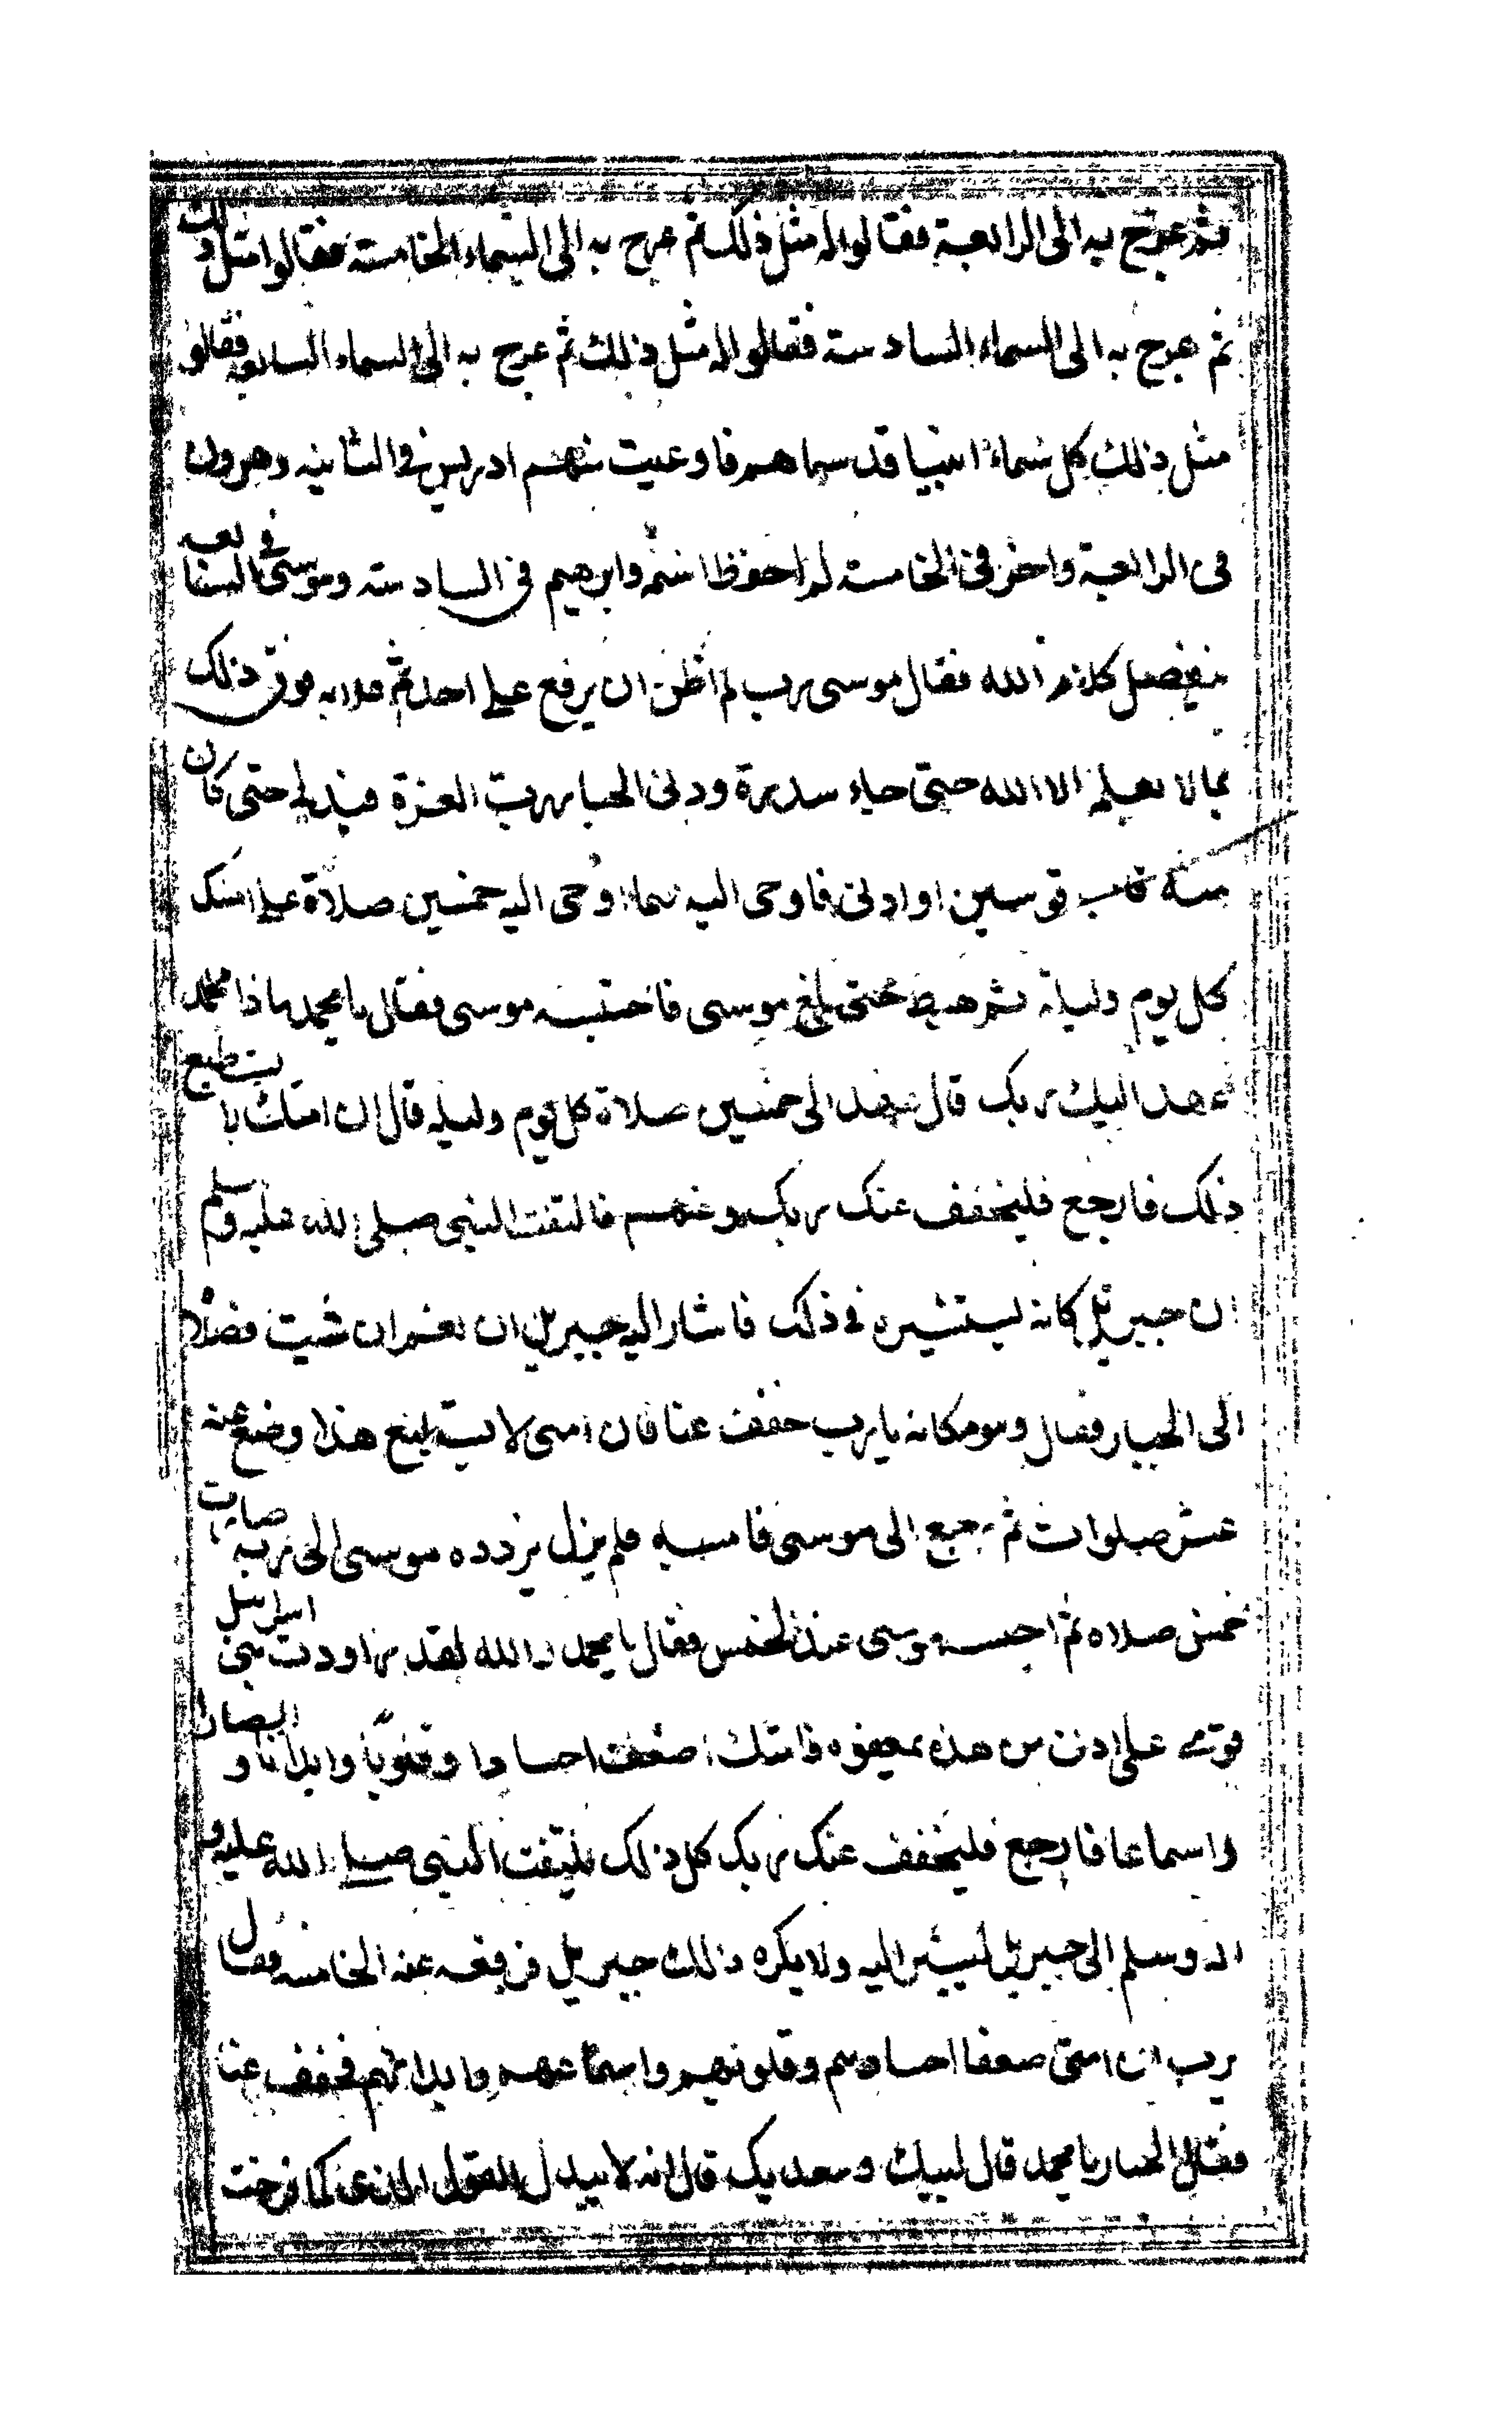 ثم عرج به الى الرابعة فقالوا له مثل ذلك ثم عرج به الى السماء الخامسة فقالوا مثل ذلك
ثم عرج به الى السماء السادسة فقالوا له مثل ذلك ثم عرج به الى السماء السابعة فقالو
مثل ذلك كل سماء انبيا قد سماهم فاوعيت منهم ادريس في الثانيه وهرون
في الرابعة واخر في الخامسة لم احفظ اسمه وابرهيم في السادسة وموسى في السابعه
بفضل كلام الله فقال موسى رب لم اظن ان يرفع علي احد ثم علا به فوق ذلك
بما لا يعلمه الا الله حتى جاء سدرة ودنى الجبار رب العزة فتدلى حتى كان
منه قاب قوسين او ادنى فاوحى اليه بما اوحى اليه خمسين صلاة على امتك
كل يوم وليلة ثم هبط حتى بلغ موسى فاحتبسه موسى فقال يا محمد ماذا
عهد اليك ربك قال عهد الى خمسين صلاة كل يوم وليلة قال ان امتك لا يستطيع
ذلك فارجع فليخفف عنك ربك وعنهم فالتفت النبي صلى الله عليه وسلم
ان جبريل كانه يستشيره في ذلك فاشار اليه جبريل ان نعم ان شيت فعلا
الى الجبار فقال وهو مكانه يا رب خفف عنا فان امتى لا تستطيع هذا وضع عنه
عشر صلوات ثم رجع الى موسى فاحتبسه فلم يزل يردده موسى الى ربه صارت
خمس صلاه ثم احتبسه موسى عند الخمس فقال يا محمد والله لقد راودت بنى اسرايل
قومي على ادنى من هذه فضعفوه فامتك اضعف اجسادا وقلوبا وابدانا و ابصارا
واسماعا فارجع فليخفف عنك ربك كل ذلك يلتفت النبي صلى الله عليه و
اله وسلم الى جبريل ليشير اليه ولا يكره ذلك جبريل فرفعه عند الخامسه فقال
يرب ان امتى ضعفا اجسادهم وقلوبهم واسماعهم وابدانهم فخفف عنا
فقال الجبار يا محمد قال لبيك وسعديك قال انه لا يبدل القول لدي كما فرضت